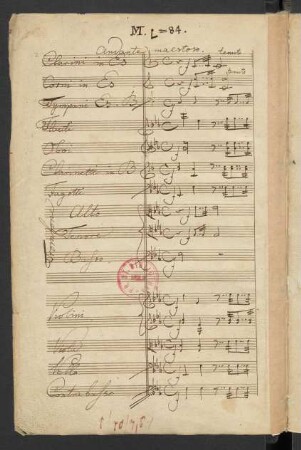 M. ♩=84.
Andante maestoso. tenuto
Clarini in Es
Corni in Es tenuto
Tympani Es. B
Flauti
Oboi
Clarinetti in B
Fagotti
Alto
Tenore
Basso
Violini
Viole
Cello
Contrabasso